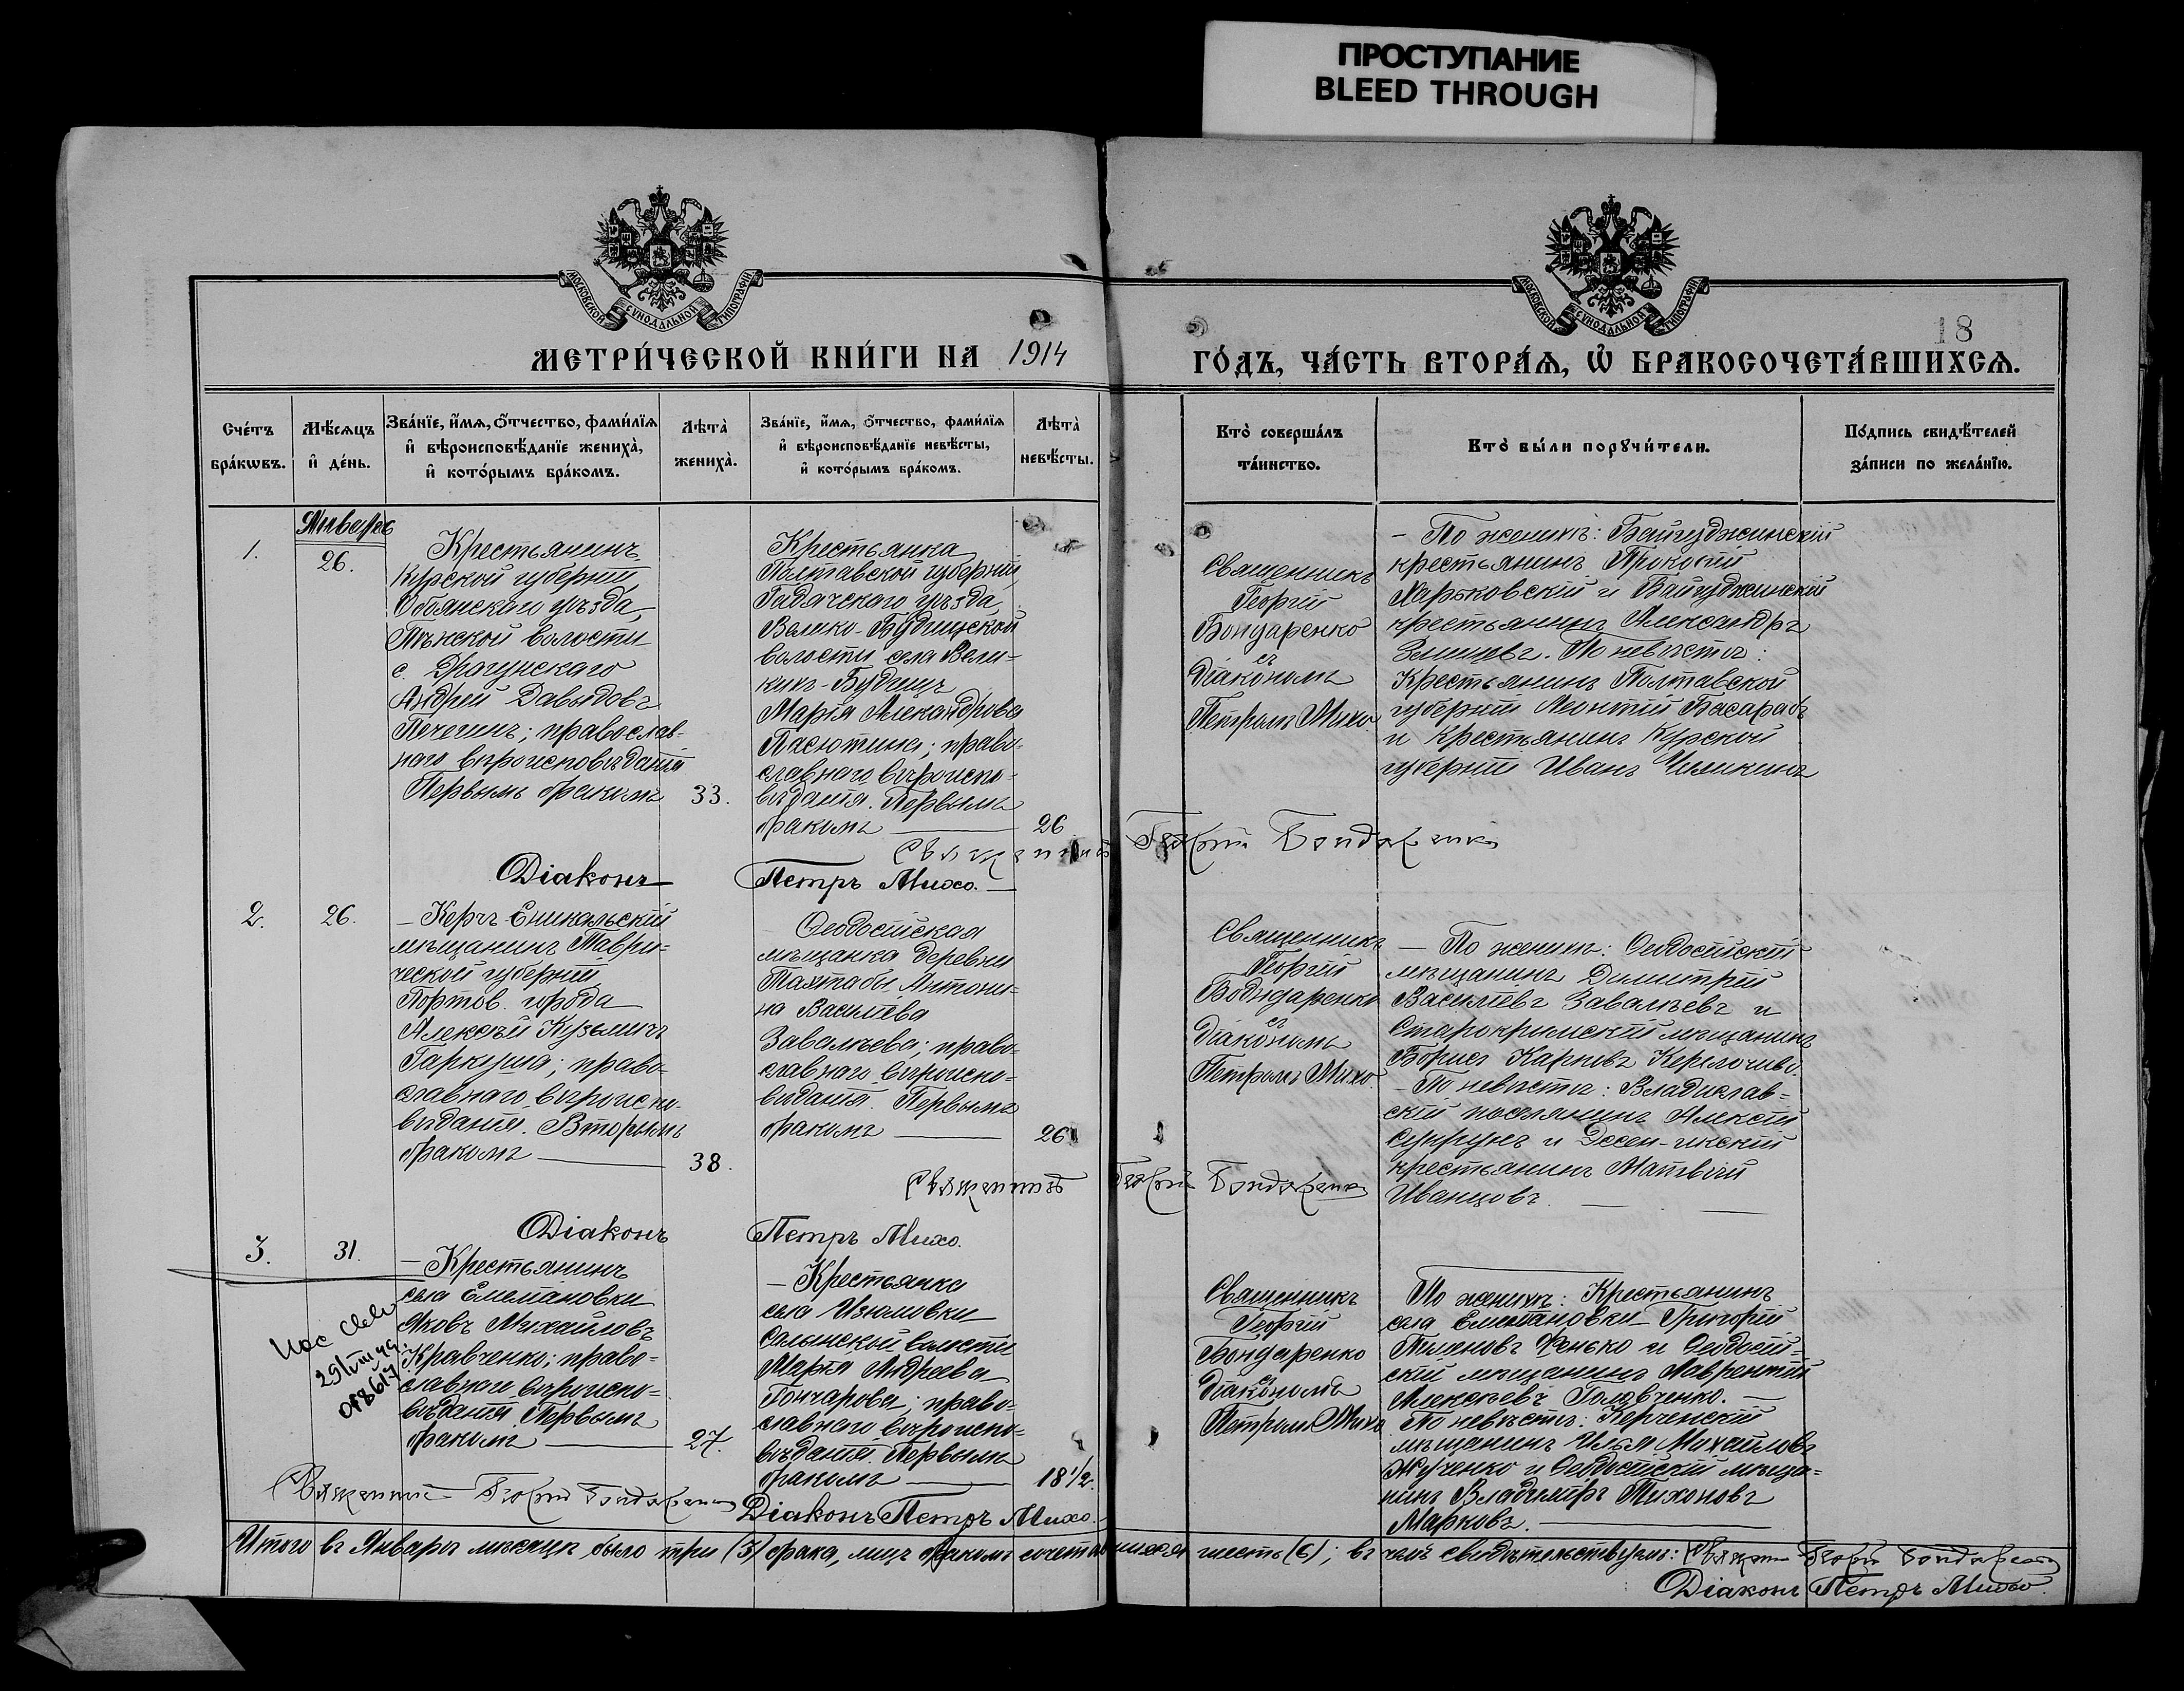 ПРОСТУПАНИЕ
BLEED THROUGH
МОСКОВСКОЙ СѴНОДАЛЬНОЙ ТИПОГРАФІИ
МОСКОВСКОЙ СѴНОДАЛЬНОЙ ТИПОГРАФІИ
18
МЕТРИ́ЧЕСКОЙ КНИ́ГИ НА 1914
ГО́ДЪ, ЧА́СТЬ ВТОРА́Ѧ, Ѡ҆ БРАКОСОЧЕТА́ВШИХСѦ.
Сче́тъ
бра́кѡвъ.
Мѣ́сѧцъ
и҆ де́нь.
Зва́нїе, и҆́мѧ, ѻ҆́тчество, фами́лїѧ
и҆ вѣроисповѣ́данїе жениха̀,
и҆ кото́рымъ бра́комъ.
Лѣта̀
жениха̀.
Зва́нїе, и҆́мѧ, ѻ҆́тчество, фами́лїѧ
и҆ вѣроисповѣ́данїе невѣ́сты,
и҆ кото́рымъ бра́комъ.
Лѣта̀
невѣ́сты.
Кто̀ соверша́лъ
та́инство.
Кто̀ бы́ли порꙋчи́тели.
По́дпись свидѣ́телей
за́писи по жела́нїю.
1.
Январь
26.
Крестьянинъ
Курской губерніи
Обоянскаго уѣзда,
волости
с. Драгунскаго
Андрей Давыдовъ
Печегинъ; православ-
наго вѣроисповѣданія
Первымъ бракомъ
33.
Крестьянка
Полтавской губерніи
Гадячскаго уѣзда,
Велико-Будищской
волости села Вели-
кихъ-Будищъ
Марія Александрова
Пасютина; право-
славнаго вѣроиспо-
вѣданія. Первымъ
бракомъ
26
Священникъ
Георгій
Бондаренко
съ
діакономъ
Петромъ Михо.
- По женихѣ: Байгуджинскій
крестьянинъ Прокофій
Харьковскій и Байгуджинскій
крестьянинъ Александръ
По невѣстѣ:
Крестьянинъ Полтавской
губерніи Леонтій Басарабъ
и крестьянинъ Курской
губерніи Иванъ Чиликинъ
Священникъ Георгій Бондаренко
Діаконъ Петръ Михо.
2.
26.
- Керчь-Еникальскій
мѣщанинъ Таври-
ческой губерніи
Портов. города
Алексѣй Кузьмичъ
Гаркуша; право-
славнаго вѣроиспо-
вѣданія. Вторымъ
бракомъ
38.
Ѳеодосійская
мѣщанка деревни
Тахтабы Антони-
на Васильева
Завалѣева; право-
славнаго вѣроиспо-
вѣданія. Первымъ
бракомъ
26
Священникъ
Георгій
Бодндаренко
съ
діакономъ
Петромъ Михо.
- По женихѣ: Ѳеодосійскій
мѣщанинъ Димитрій
Васильевъ Завалѣевъ и
Старокрымскій мѣщанинъ
Борисъ Карповъ
- По невѣстѣ: Владислав-
скій поселянинъ Алексѣй
Супрунъ и
крестьянинъ Матвѣй
Иванцовъ.
Священникъ Георгій Бондаренко
Діаконъ Петръ Михо.
3.
31.
- Крестьянинъ
села Емельяновки
Яковъ Михайловъ
Кравченко; право-
славнаго вѣроиспо-
вѣданія. Первымъ
бракомъ
27.
29/VIII 49
- Крестьянка
села Изюмовки
Салынской волости
Марія Андреева
Гончарова; право-
славнаго вѣроиспо-
вѣданія. Первымъ
бракомъ
18 1/2.
Священникъ
Георгій
Бондаренко
съ
діакономъ
Петромъ Михо
По женихѣ: Крестьянинъ
села Емельяновки Григорій
Фенько и Ѳеодосій-
скій мѣщанинъ Лаврентій
Алексѣевъ Головченко.
По невѣстѣ: Керченскій
мѣщанинъ Илья Михайловъ
Жученко и Ѳеодосійскій мѣща-
нинъ Владиміръ Тихоновъ
Марковъ.
Священникъ Георгій Бондаренко Діаконъ Петръ Михо.
Итого въ Январѣ мѣсяцѣ было три (3) брака, лицъ бракомъ сочетавшихся шесть (6); въ чемъ свидѣтельствуемъ: Священникъ Георгій Бондаренко
Діаконъ Петръ Михо.